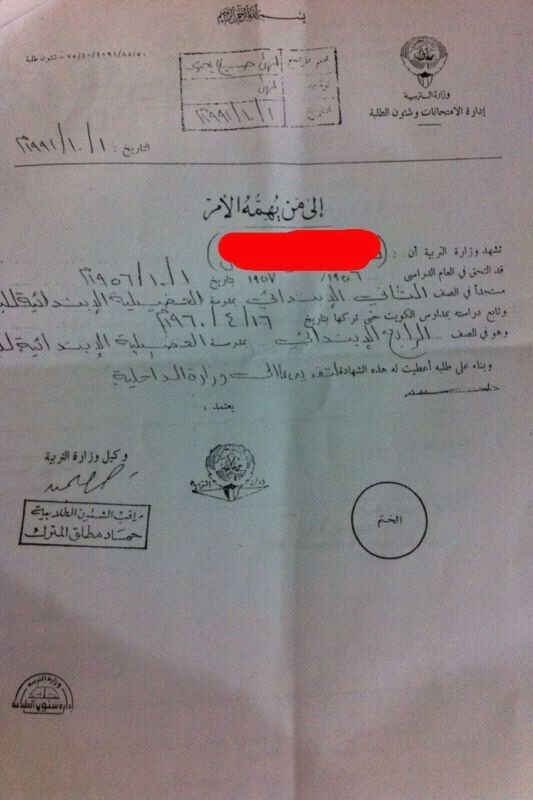 بسم الله الرحمن الرحيم
وزارة التربية
إدارة الامتحانات وشئون الطلبة
شئون طلبة
اسم المراجع
التاريخ ١/١٠/١٩٩١م
التاريخ : ١/١٠/١٩٩١م
إلى من يهمه الأمر
تشهد وزارة التربية أن :
قد التحق في العام الدراسي ١٩٥٦/ ١٩٥٧ بتاريخ ١/١٠/١٩٥٦م
مستجداً في الصف الثاني الإبتدائي بمدرسة الفضيلية الإبتدائية
وتابع دراسته بمدارس الكويت حتى تركها بتاريخ ١٦/٤/١٩٦٠م
وهو في الصف الرابع الإبتدائي بمدرسة الفضيلية الإبتدائية
وبناء على طلبه أعطيت له هذه الشهادة لتقديمها إلى وزارة الداخلية
يعتمد ،
وكيل وزارة التربية
وزارة التربية
مراقب الشئون الطلابية
حماد مطلق المترك
الختم
وزارة التربية